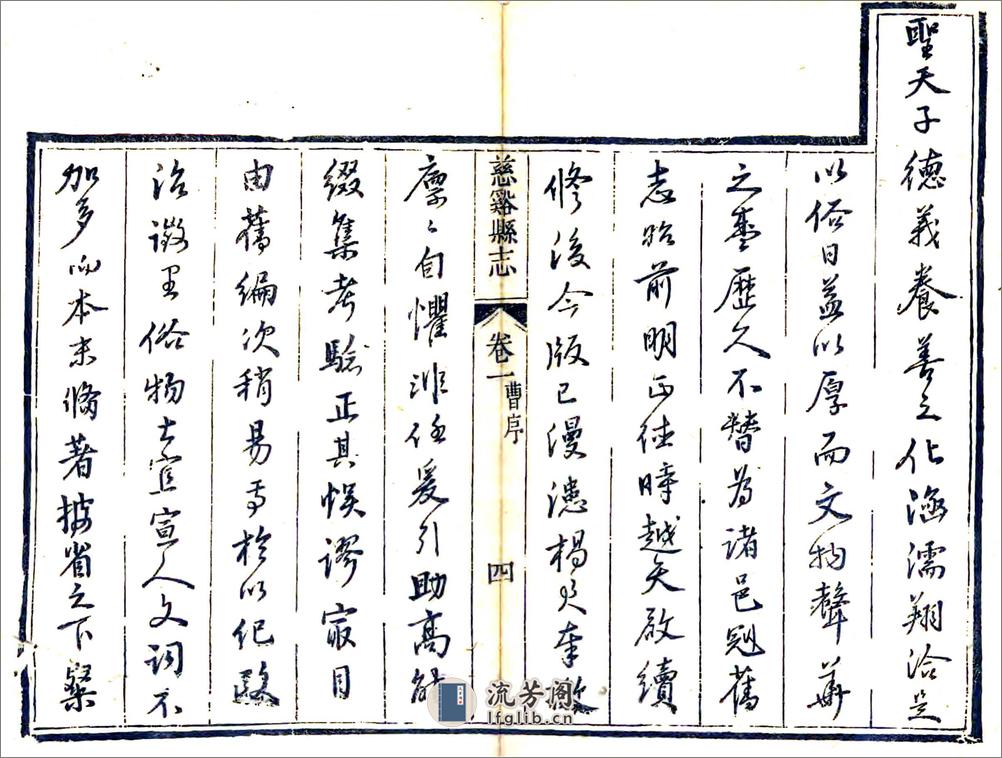 聖天子德義養善之化涵濡翔洽是
以俗日益以厚而文物聲華
之盛歷久不替為諸邑冠舊
志昉前明正德時越天啟續
修後今版已漫漶楊
慈谿縣志 卷一 曹序 四
廩〻自懼非任爰引助高能
綴集考驗正其悞謬最目
由舊編次稍易要於以紀
治徵里俗物土宣人文詞不
加多而本末脩著披省之下粲
流芳阁
lfglib.cn